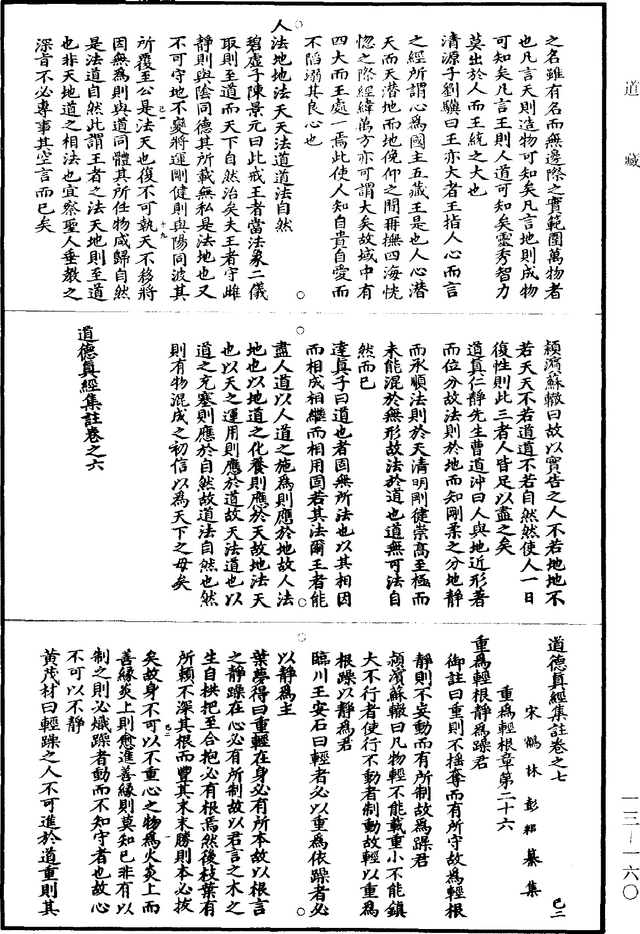 道藏
之名雖有名而無邊際之實範圍萬物者
也凡言天則造物可知矣凡言地則成物
可知矣凡言王則人道可知矣靈秀智力
莫出於人而王統之大也
清源子劉驥曰王亦大者王指人心而言
之經所謂心為國主五藏王是也人心潛
天而天潛地而地俛仰之間再撫四海恍
惚之際經緯萬方亦可謂大矣故域中有
四大而王處一焉此使人知自貴自愛而
不陷溺其良心也
人法地地法天天法道道法自然
碧虛子陳景元曰此戒王者當法象二儀
取則至道而天下自然治矣夫王者守雌
靜則與陰同德其所載無私是法地也又
不可守地不變將運剛健則與陽同波其
所覆至公是法天也復不可執天不移將
因無為則與道同體其所任物咸歸自然
是法道自然此謂王者之法天地則至道
也非天地道之相法也宜察聖人垂教之
深旨不必專事其空言而已矣
潁濱蘇轍曰故以實告之人不若地地不
若天天不若道道不若自然然使人一日
復性則此三者人皆足以盡之矣
道真仁靜先生曹道沖曰人與地近形著
而位分故法則於地而知剛柔之分地靜
而承順法則於天清明剛健崇高至極而
未能混於無形故法於道也道無可法自
然而已
達真子曰道也者固無所法也以其相因
而相成相繼而相用固若其法爾王者能
盡人道以人道之施為則應於地故人法
地也以地道之化養則應於天故地法天
也以天之運用則應於道故天法道也以
道之充塞則應於自然故道法自然也然
則有物混成之初信以為天下之母矣
道德真經集註卷之六
道德真經集註卷之七
己二
宋鶴林彭耜纂集
重為輕根章第二十六
重為輕根靜為躁君
御註曰重則不搖奪而有所守故為輕根
靜則不妄動而有所制故為躁君
潁濱蘇轍曰凡物輕不能載重小不能鎮
大不行者使行不動者制動故輕以重為
根躁以靜為君
臨川王安石曰輕者必以重為依躁者必
以靜為主
葉夢得曰重輕在身必有所本故以根言
之靜躁在心必有所制故以君言之木之
生自拱把至合抱必有根焉然後枝葉有
所賴不深其根而豐其末末勝則本必拔
矣故身不可以不重心之物為火炎上而
善緣炎上則愈進善緣則莫知已非有以
制之則必熾躁者動而不知守者也故心
不可以不靜
黃茂材曰輕躁之人不可進於道重則其
一三—一六〇